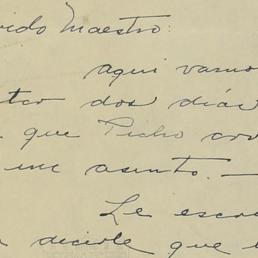 rido Maestro:
aqui vamos
tro dos días
que Picho cor
me asiento. —
Le escri
decirle que